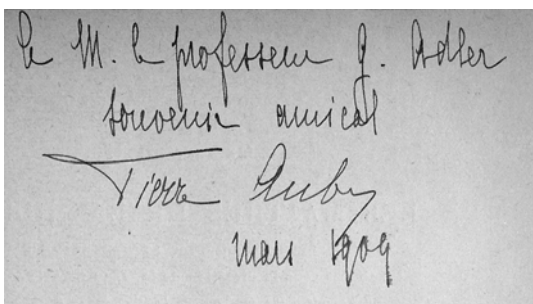 à M. le professeur G. Adler
souvenir amical
Pierre Aubry
mars 1909